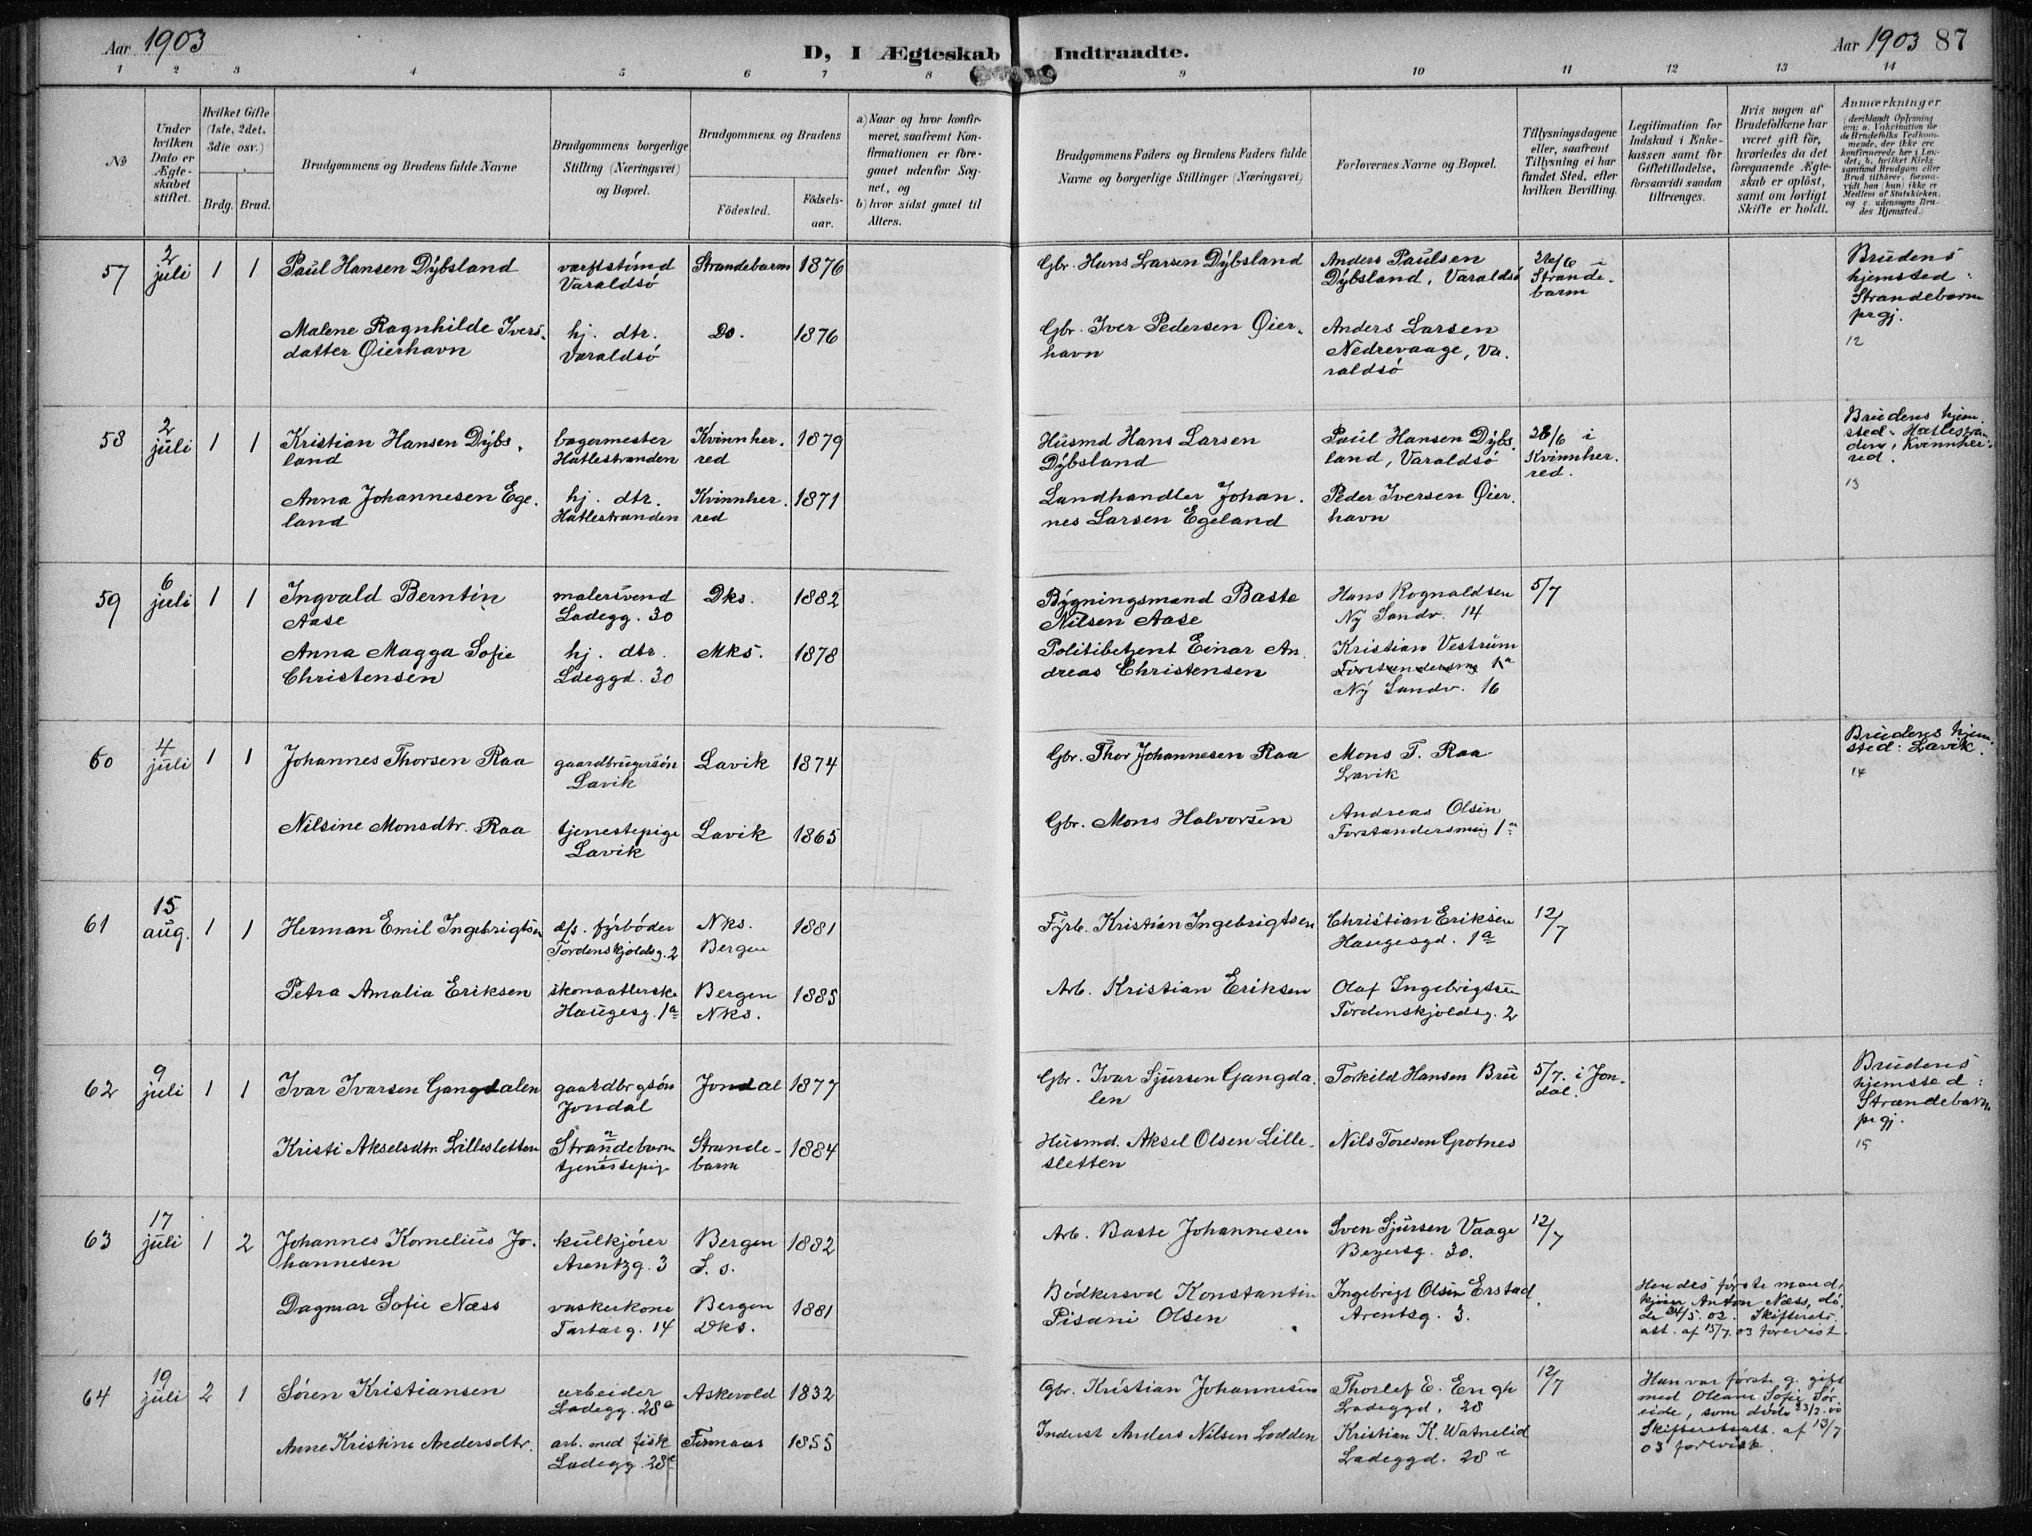 Aar 1903
D, I Ægteskab Indtraadte.
Aar 1903 87
1 2 3 4 5 6 7 8 9 10 11 12 13 14
No
Under hvilken Dato er Ægteskabet stiftet.
Hvilket Gifte (1ste, 2det, 3die osv.)
Brdg. Brud.
Brudgommens og Brudens fulde Navne
Brudgommens borgerlige Stilling (Næringsvei) og Bopæl.
Brudgommens og Brudens
Födested.
Födselsaar.
a) Naar og hvor konfirmeret, saafremt Konfirmationen er foregaaet udenfor Sognet, og
b) hvor sidst gaaet til Alters.
Brudgommens Faders og Brudens Faders fulde Navne og borgerlige Stillinger (Næringsvei)
Forlovernes Navne og Bopæl.
Tillysningsdagene eller, saafremt Tillysning ei har fundet Sted, efter hvilken Bevilling.
Legitimation for Indskud i Enkekassen samt for Giftetilladelse, forsaavidt saadan tiltrænges.
Hvis nogen af Brudefolkene har været gift för, hvorledes da det foregaaende Ægteskab er oplöst, samt om lovligt Skifte er holdt.
Anmærkninger
57 2 juli 1 1 Paul Hansen Dybsland
værftstömd Varaldsö
Strandebarm 1876
Gbr. Hans Larsen Dybsland
Anders Paulsen Dybsland, Varaldsö
28/6 i Strandebarm
Brudens hjemsted: Strandebarm prgj.
12
Malene Ragnhilde Iversdatter Øierhavn
hj. dtr. Varaldsö
Do. 1876
Gbr. Iver Pedersen Øierhavn
Anders Larsen Nedrevaage, Varaldsö
58 2 juli 1 1 Kristian Hansen Dybsland
bagermester Hatlestranden
Kvinnherred 1879
Husmd Hans Larsen Dybsland
Paul Hansen Dybsland, Varaldsö
28/6 i Kvinnherred.
Brudens hjemsted: Hatlestranden, Kvinnherred.
13
Anna Johannesen Egeland
hj. dtr. Hatlestranden
Kvinnherred 1871
Landhandler Johannes Larsen Egeland
Peder Iversen Øierhavn
59 6 juli 1 1 Ingvald Berntin Aase
malersvend Ladegg. 30
Dks. 1882
Bygningsmand Baste Nilsen Aase
Hans Rognaldsen Ny Sandv. 14
5/7
Anna Magga Sofie Christensen
hj. dtr. Ldeggd. 30
Mks. 1878
Politibetjent Einar Andreas Christensen
Kristian Vestrum
Forstandersmg 1a
Ny Sandv. 16
60 4 juli 1 1 Johannes Thorsen Raa
gaardbrugersön Lavik
Lavik 1874
Gbr. Thor Johannesen Raa
Mons T. Raa Lavik
Brudens hjemsted: Lavik.
14
Nilsine Monsdtr. Raa
tjenestepige Lavik
Lavik 1865
Gbr. Mons Halvorsen
Andreas Olsen Forstandersmg 1a
61 15 aug. 1 1 Herman Emil Ingebrigtsen
dfs. fyrböder Tordenskjoldsg. 2
Nks. Bergen 1881
Fyrb. Kristian Ingebrigtsen
Christian Eriksen Haugesgd. 1a
12/7
Petra Amalia Eriksen
skonaatlerske Haugesg. 1a
Bergen Nks. 1885
Arb. Kristian Eriksen
Olaf Ingebrigtsen Tordenskjoldsg. 2
62 9 juli 1 1 Ivar Ivarsen Gangdalen
gaardbrgsön Jondal
Jondal 1877
Gbr. Ivar Sjursen Gangdalen
Torkild Hansen Bru
5/7. i Jondal.
Brudens hjemsted: Strandebarm prgj.
15
Kristi Akselsdtr. Lillesletten
Strandebarm tjenestepige
Strandebarm 1884
Husmd. Aksel Olsen Lillesletten
Nils Toresen Grotnes
63 17 juli 1 2 Johannes Kornelius Johannesen
kulkjörer Arentzg. 3
Bergen S. s. 1882
Arb. Baste Johannesen
Sven Sjursen Vaage Beyersg. 30.
12/7
Dagmar Sofie Næss
vaskerkone Tartarg. 14
Bergen Dks. 1881
Bödkersvd Konstantin Pisani Olsen
Ingebrigt Olsen Erstad Arentsg. 3.
Hendes förste mand, kjörer Anton Næss, döde 24/5.02. Skifteretsatt. af 15/7.03 forevist.
64 19 juli 2 1 Sören Kristiansen
arbeider Ladegg. 28a
Askevold 1832
Gbr. Kristian Johannesen
Thorlef E. Engh Ladeggd. 28
12/7
Han var förste g. gift med Oleane Sofie Sörside, som döde 23/2.00 Skifteretsatt. af 13/7 03 forevist.
Anne Kristine Andersdtr.
arb. med fisk Ladegg. 28c
Finnaas 1855
Inderst Anders Nilsen Lodden
Kristian K. Watnelid Ladeggd. 28c